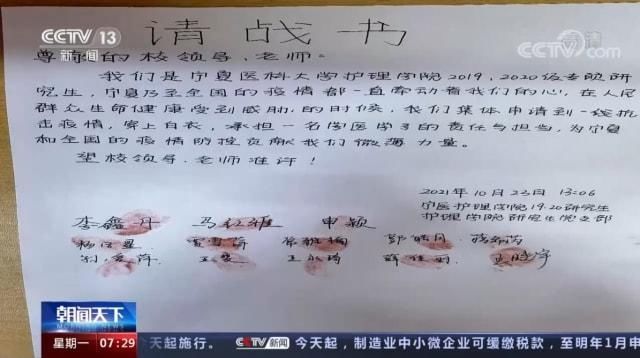 CCTV 13
新闻
央视网
CCTV.com
请战书
尊敬的校领导、老师:
我们是宁夏医科大学护理学院2019,2020级专硕研
究生,宁夏乃至全国的疫情都一直牵动着我们的心,在人民
群众生命健康受到威胁的时候,我们集体申请到一线抗
击疫情,穿上白衣,承担一名学医学子的责任与担当,为宁夏
和全国的疫情防控贡献我们微薄力量。
望校领导、老师准许!
2021年10月23日 13:06
宁医护理学院19.20研究生
护理学院研究生党支部
李鑫丹 马红雅 申颖
朝闻天下
星期一 07:29
今天起施行。 CCTV新闻 今天起,制造业中小微企业可缓缴税款,至明年1月申